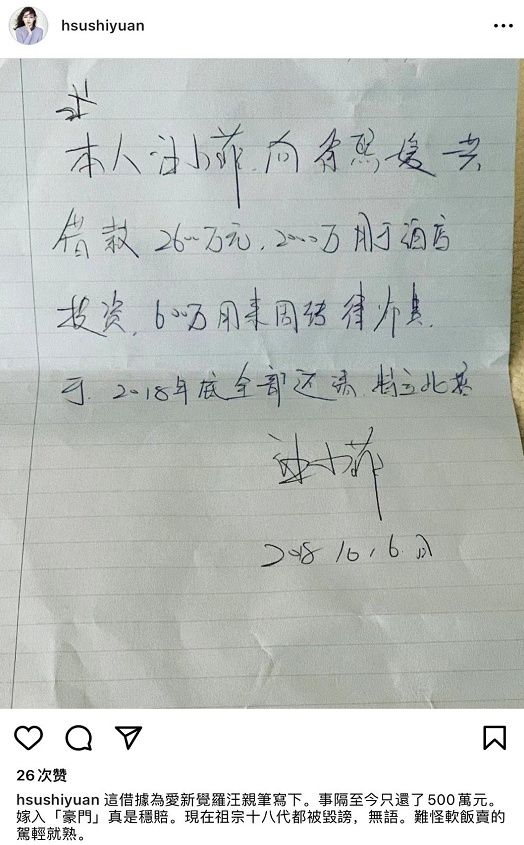 hsushiyuan
本人汪小菲.向徐熙媛共
借款 2600万元.2000万用于酒店
投资.600万用来周转律师费.
于.2018年底全部还清.特立此据
汪小菲
2018 10.6.日
26次赞
hsushiyuan 這借據為愛新覺羅汪親筆寫下。事隔至今只還了500萬元。
嫁入「豪門」真是穩賠。現在祖宗十八代都被毀謗，無語。難怪軟飯賣的
駕輕就熟。